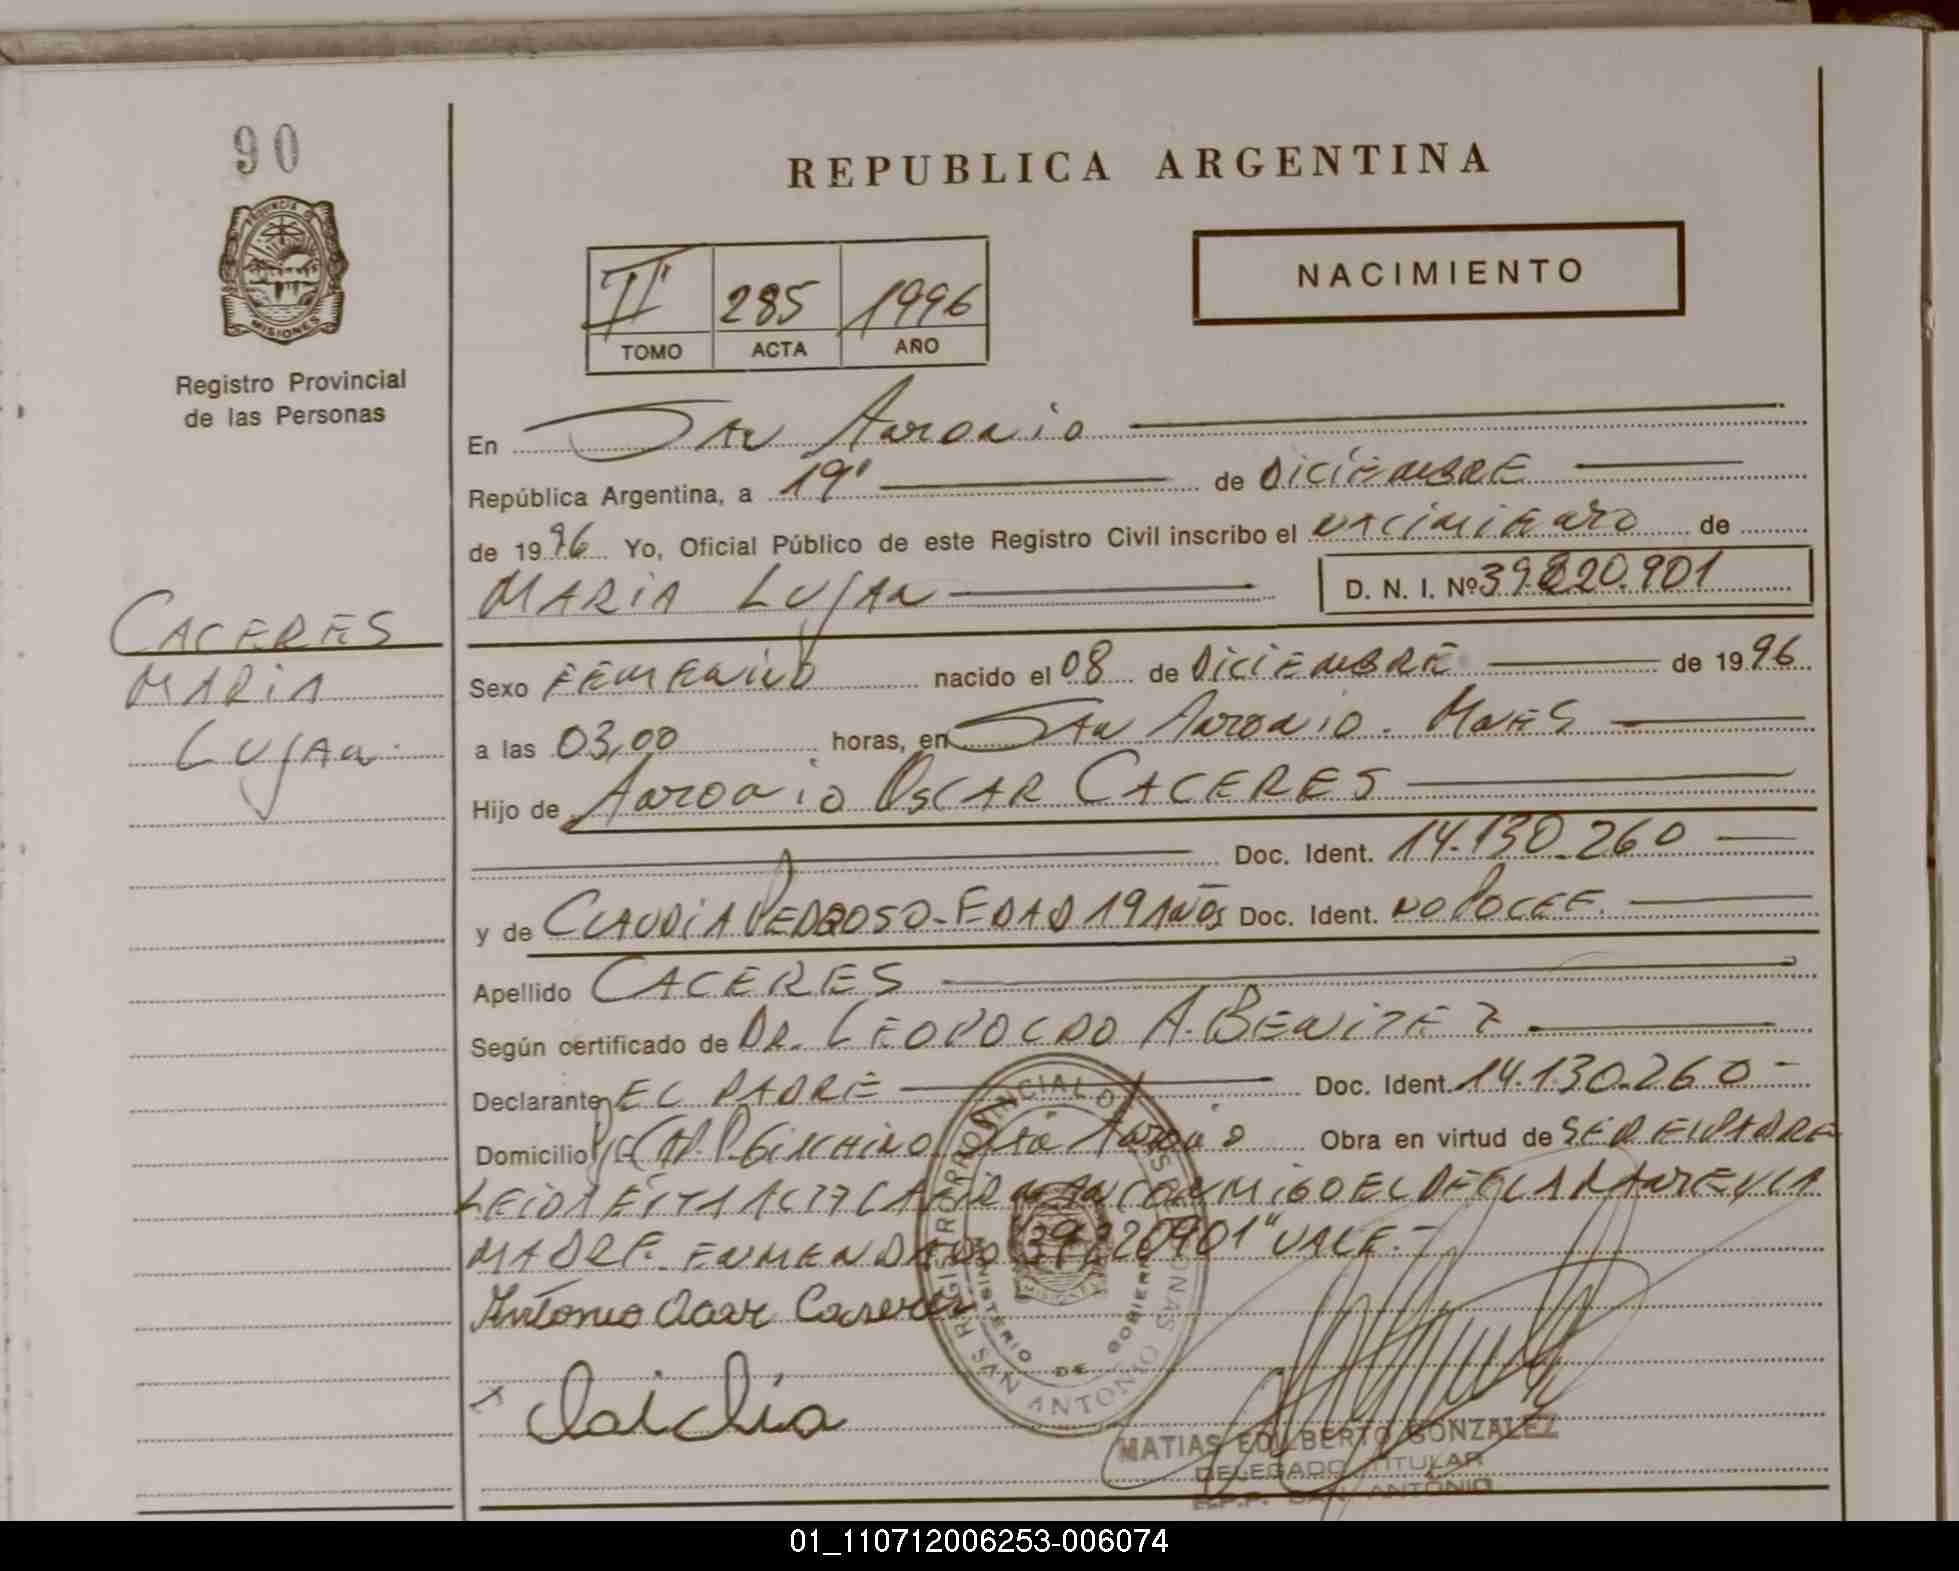 90
REPUBLICA ARGENTINA
PROVINCIA DE
MISIONES
Registro Provincial
de las Personas
NACIMIENTO
II 285 1996
TOMO ACTA AÑO
En San Antonio
República Argentina, a 19 de DiCiEMBRE
de 1996 Yo, Oficial Público de este Registro Civil inscribo el NACiMiENTO de
MARiA LUJAN D. N. I. Nº 39.220.901
CACERES
MARiA
LUJAN
Sexo FEMENiNO nacido el 08 de DiCiEMBRE de 1996
a las 03,00 horas, en San Antonio. MNES
Hijo de Antonio OSCAR CACERES
Doc. Ident. 14.130.260
y de CLAUDiA PEDROSO - EDAD 19 AÑOS Doc. Ident. NO POCEE.
Apellido CACERES
Según certificado de DR. LEOPOLDO A. BENiTEZ
Declarante EL PADRE Doc. Ident. 14.130.260
Domicilio San Antonio Obra en virtud de SER EL PADRE
LEiDA ESTA ACTA LA FiRMAN CONMiGO EL DECLARANTE Y LA
MADRE. ENMENDADO "39.220901" VALE.-
Antonio Oscar Caceres
Claudia
REGISTRO PROVINCIAL DE LAS PERSONAS
MINISTERIO DE GOBIERNO
SAN ANTONIO
MATIAS EDILBERTO GONZALEZ
DELEGADO TITULAR
R.P.P. SAN ANTONIO
01_110712006253-006074